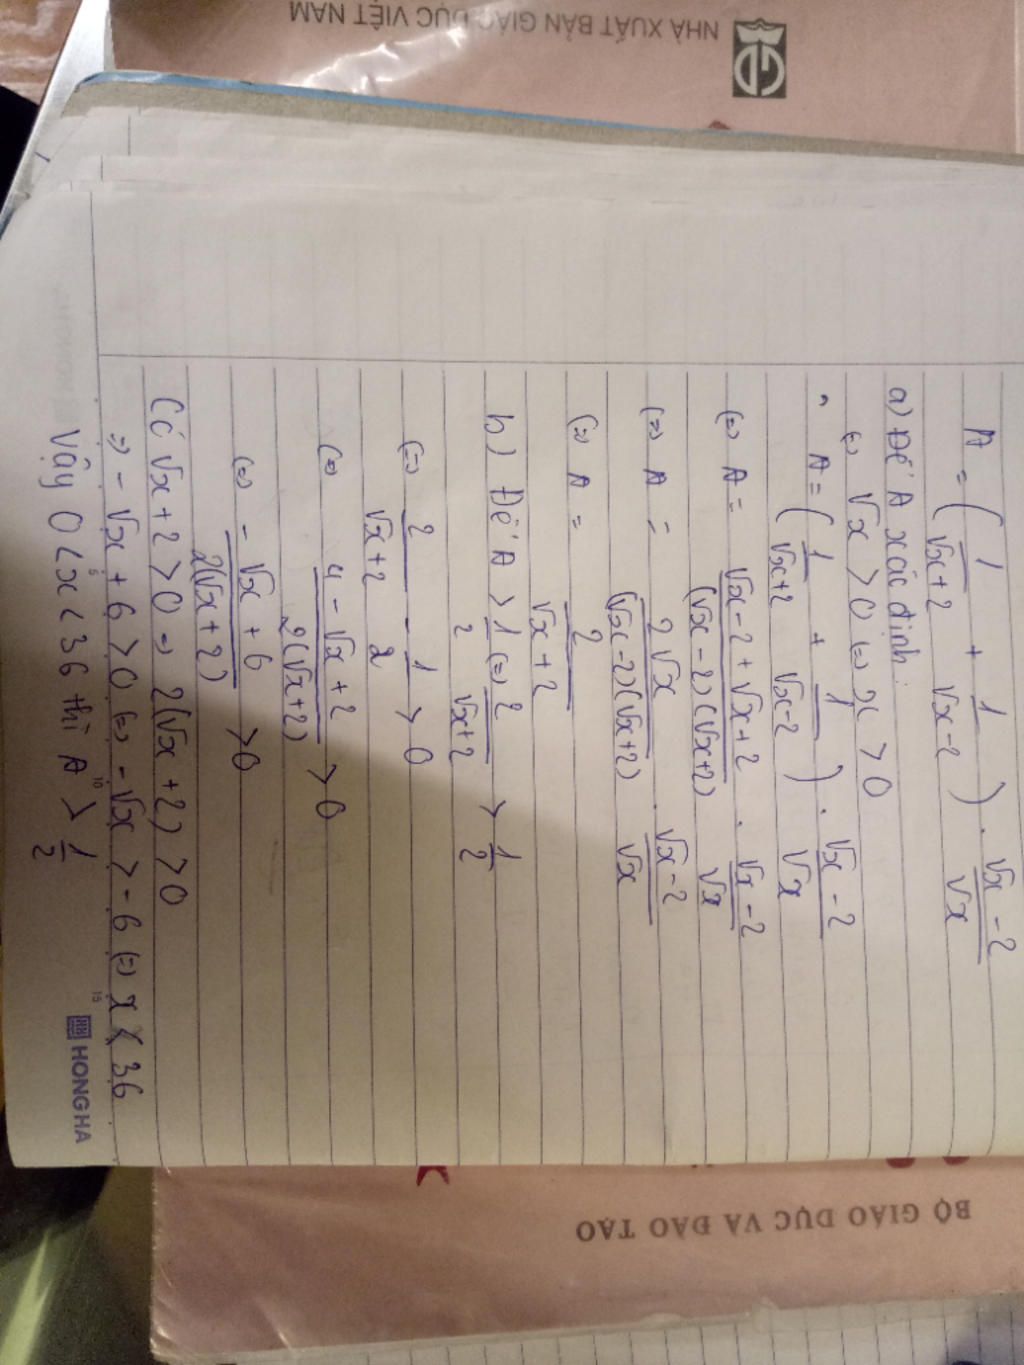 NHÀ XUẤT BẢN GIÁO DỤC VIỆT NAM
A = ( 1/(√x+2) + 1/(√x-2) ) . (√x-2)/√x
a) Để A xác định:
(=) √x > 0 (=) x > 0
A = ( 1/(√x+2) + 1/(√x-2) ) . (√x-2)/√x
(=) A = (√x-2+√x+2)/((√x-2)(√x+2)) . (√x-2)/√x
(=) A = 2√x/((√x-2)(√x+2)) . (√x-2)/√x
(=) A = 2/(√x+2)
b) Để A > 1/2 (=) 2/(√x+2) > 1/2
(=) 2/(√x+2) - 1/2 > 0
(=) (4-√x+2)/(2(√x+2)) > 0
(=) (-√x+6)/(2(√x+2)) > 0
Có √x+2 > 0 => 2(√x+2) > 0
=) -√x+6 > 0 (=) -√x > -6 (=) x < 36
Vậy 0 < x < 36 thì A > 1/2
5 10 15
HONG HA
BỘ GIÁO DỤC VÀ ĐÀO TẠO